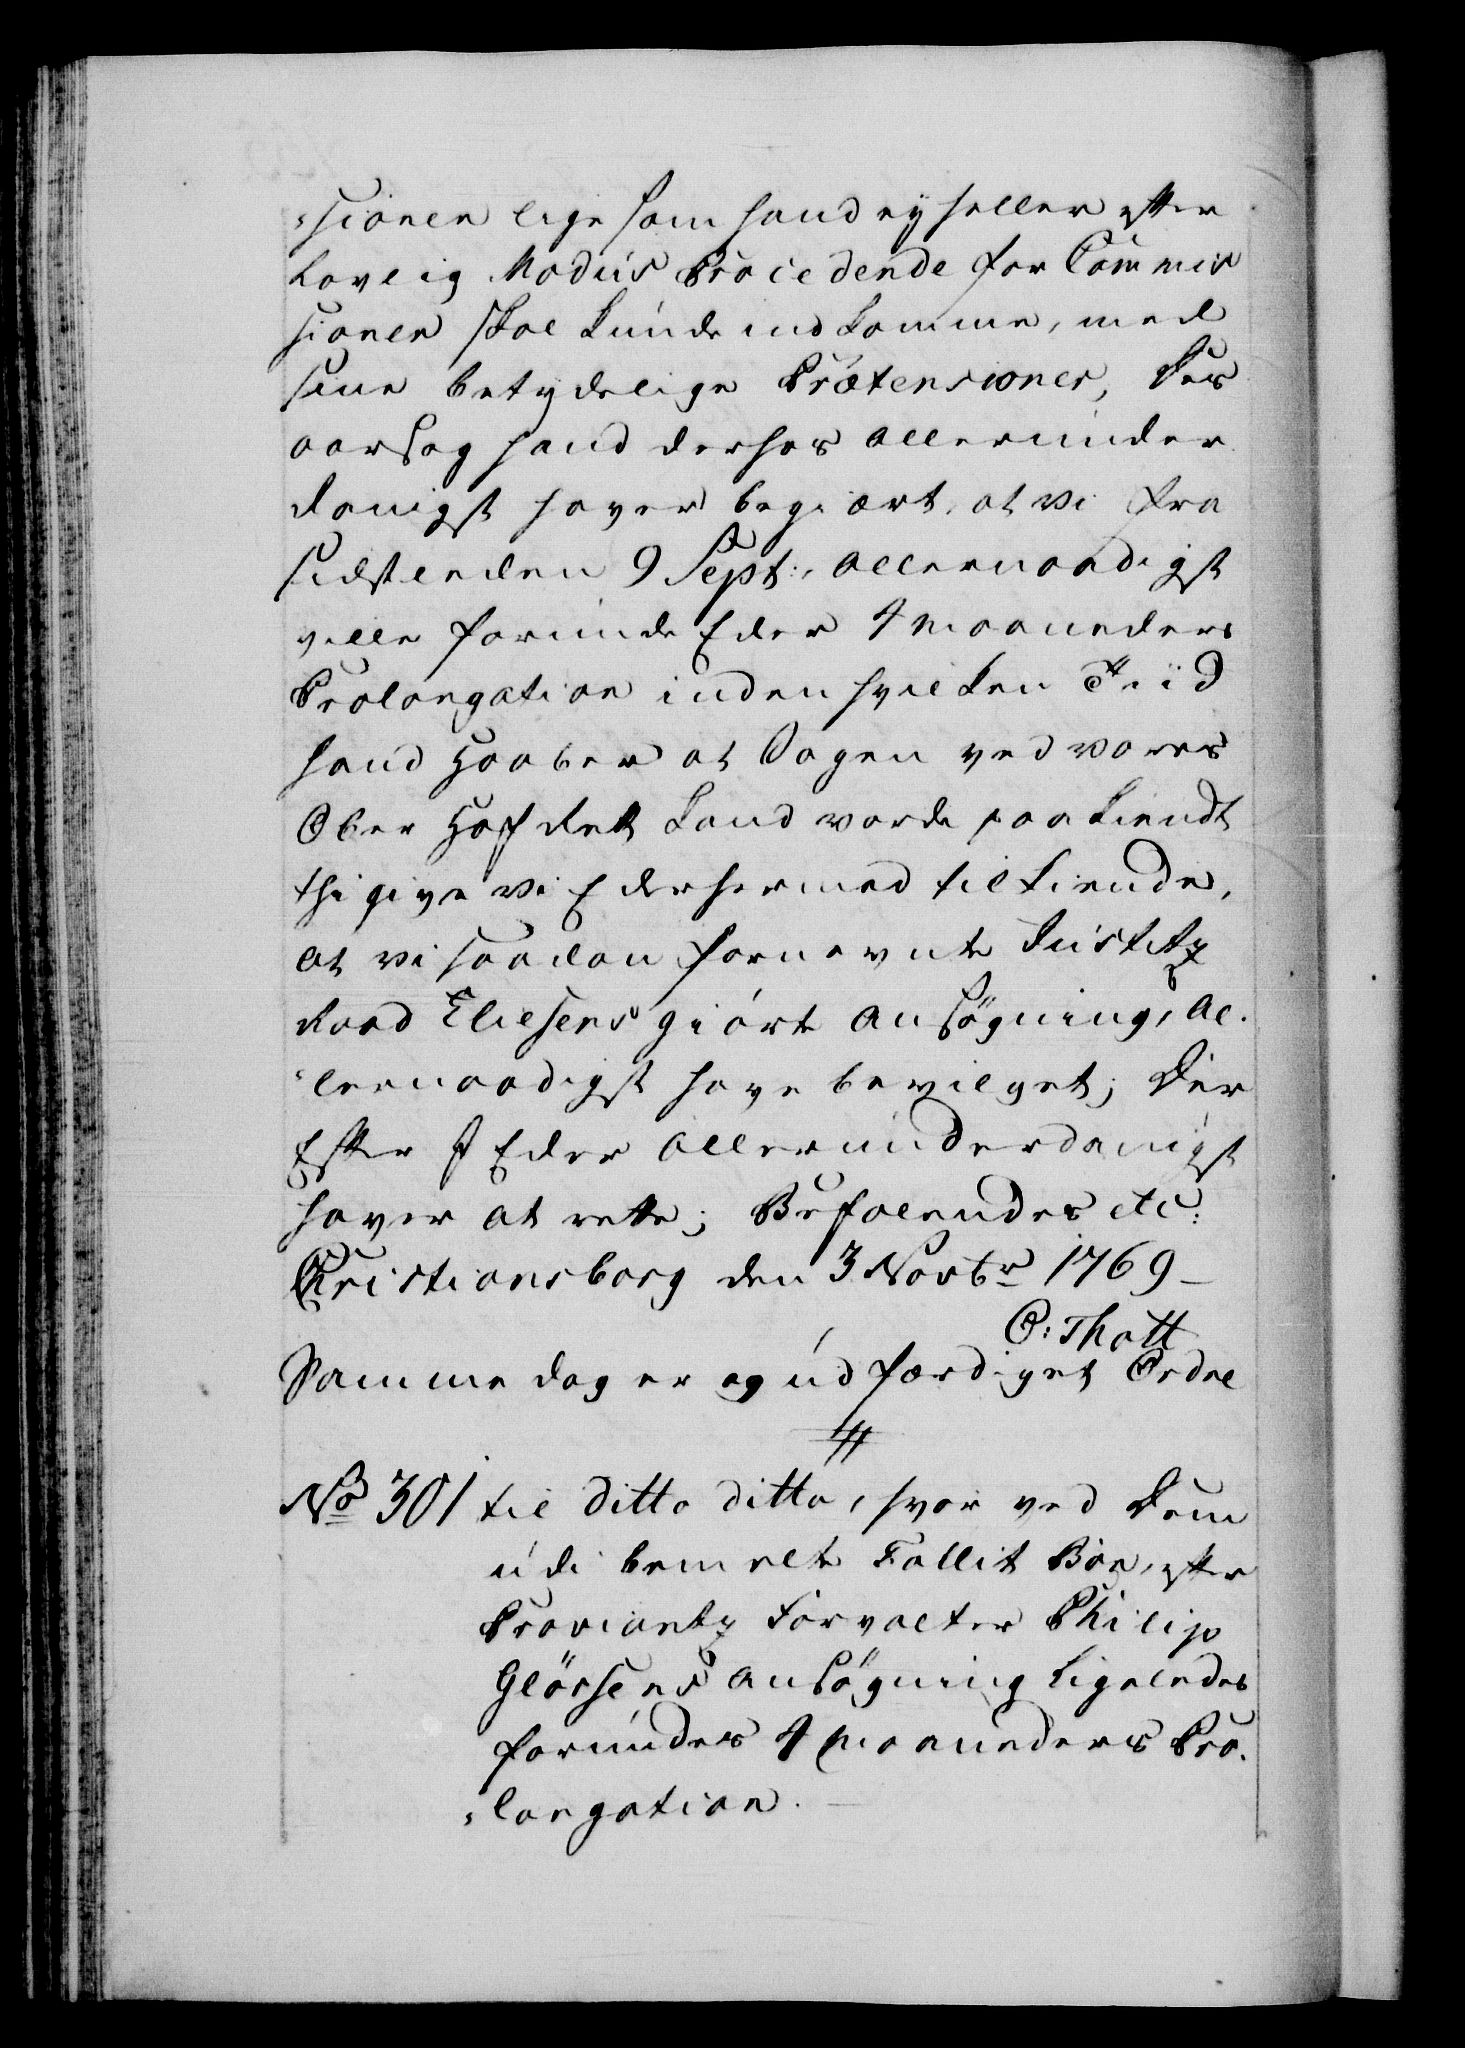 -sionen ligesom hand ey heller efter
Lovlig Modus Procedende for Commis
sionen skal kunde indkomme, med
sine betydelige Prætensioner, Des
aarsag hand derhos allerunder
danigst haver begiært, at vi fra
sidstleden 9 Sept:, allernaadigst
ville forunde Eder 4 Maaneders
Prolongation inden hvilken Tiid
hand Haaber at Sagen ved vores
Ober Hof Ret kand vorde paakiendt
thi give vi Eder hermed tilkiende,
at vi saadan fornevnte Justitz
Raad Eliesens giörte Ansögning, al-
-lernaadigst have bevilget; Der
Efter I Eder allerunderdanigst
haver at rette; Befalendes etc:
Christiansborg den 3 Novbr 1769 -
O: Thott
Samme dag er og udfærdiget Ordre
No 301 til ditto ditto, hvor ved Dem
udi bemelte Fallit Boe, efter
Proviantz Forvalter Philip
Glörsens Ansögning ligeledes
forundes 4 Maaneders Pro-
-longation. -